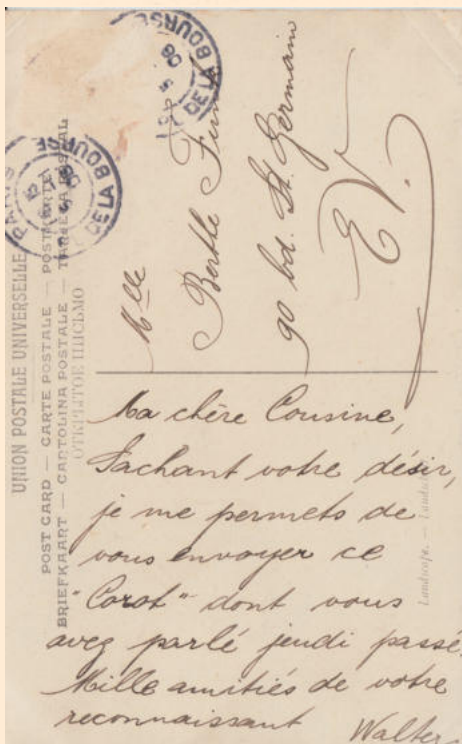 UNION POSTALE UNIVERSELLE
POST CARD — CARTE POSTALE — POSTKARTE
BRIEFKAART — CARTOLINA POSTALE — TARJETA POSTAL
ОТКРЫТОЕ ПИСЬМО
PARIS
DE LA BOURSE
DE LA BOURSE
Mlle
Berthe
90 bd. St. Germain
E.V.
Ma chère Cousine,
Sachant votre désir,
je me permets de
vous envoyer ce
"Corot" dont vous
avez parlé jeudi passé.
Mille amitiés de votre
reconnaissant Walter